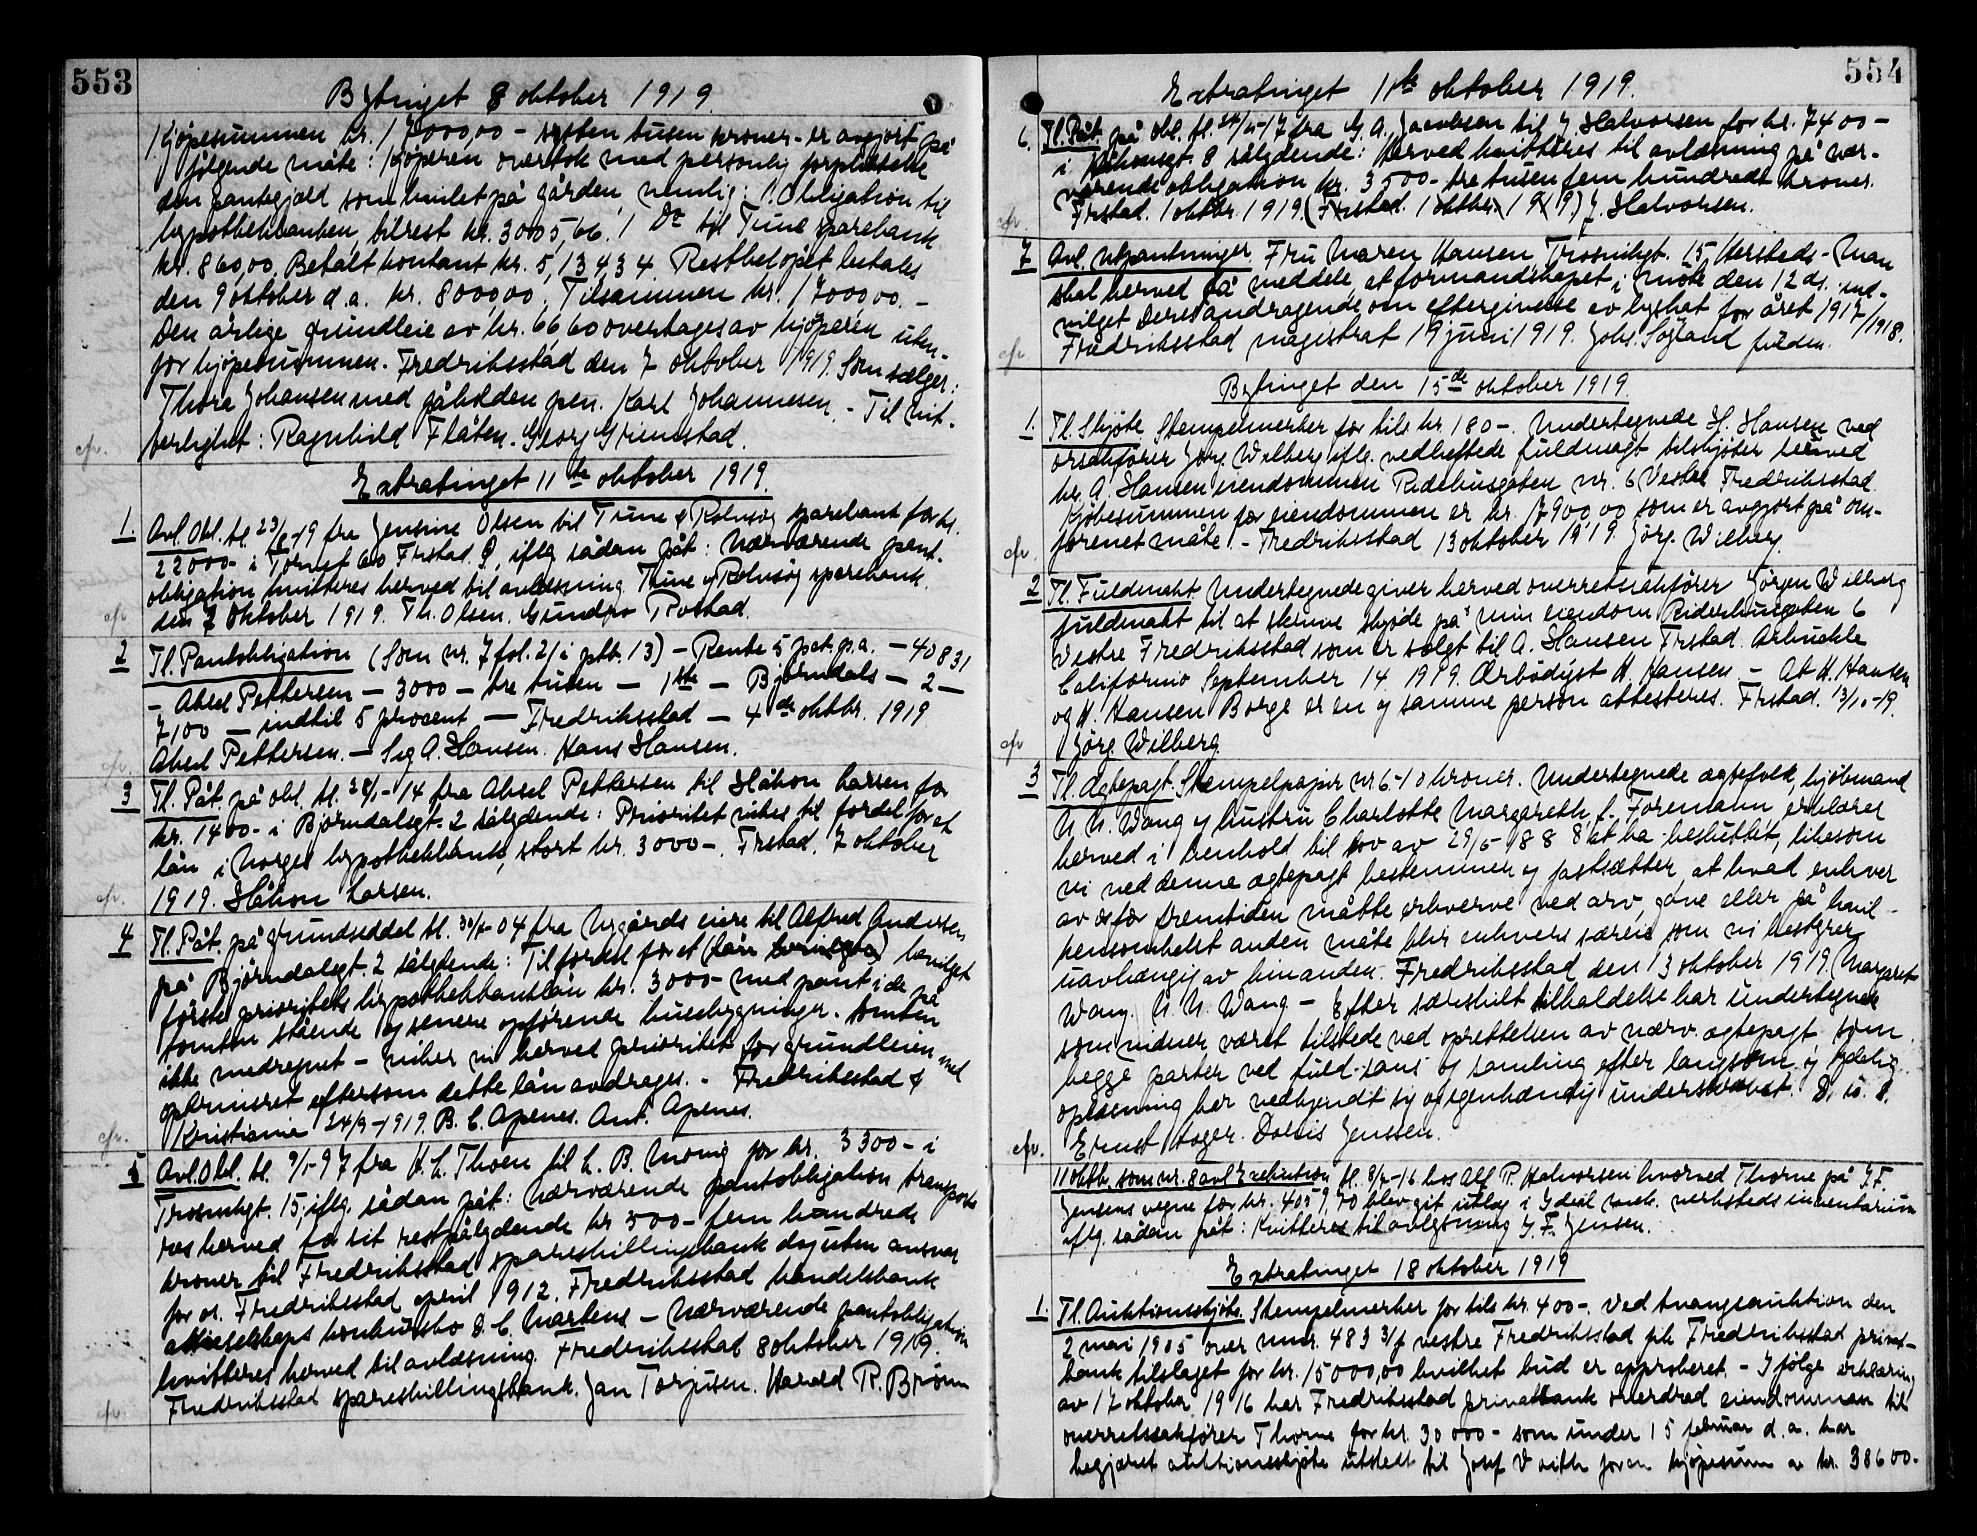 553
Bytinget 8 oktober 1919.
Kjøpesummen kr. 17000,00 – sytten tusen kroner – er avgjort på
følgende måte: Kjøperen overtok med personlig forpliktelse
den pantegjæld som hvilet på gården nemlig: 1. Obligation til
hypothekbanken, tilrest kr. 3005,66. 1 Do til Tune sparebank
kr. 860,00. Betalt kontant kr. 5,134,34 Restbeløpet betales
den 9 oktober d.a. kr. 8000,00. Tilsammen kr. 17000,00. –
Den årlige grundleie av kr. 66 60 overtages av kjøperen uten-
for kjøpesummen. Fredriksstad den 7 oktober 1919. Som sælger:
Thora Johansen med påholden pen. Karl Johannesen. – Til vit-
terlighet: Ragnhild Flåten. Georg Grimstad.
cfr.
Extratinget 11te oktober 1919.
1. Avl. Obl. tl. 23/8-19 fra Jensine Olsen til Tune & Rolvsøy sparebank for kr.
22000- i Tornet 60 Frstad. 9, iflg sådan påt: Nærværende pant-
obligation kvitteres herved til avlæsning. Tune & Rolvsøy sparebank
den 7 oktober 1919. Th. Olsen. Gundro Rostad.
cfr
2 Tl. Pantobligation (Som nr. 7 fol. 21 i ptb. 13) – Rente 5 pct. p.a. – 40831
– Aksel Pettersen – 3000 – tre tusen – 1ste – Bjørndals – 2 –
7100 – indtil 5 procent – Fredriksstad – 4de oktbr. 1919
Aksel Pettersen. – Sig A. Hansen. Hans Hansen.
cfr.
3 Tl. Påt. på obl. tl. 24/1-14 fra Aksel Pettersen til Håkon Larsen for
kr. 1400- i Bjørndalsgt. 2 sålydende: Prioritet vikes til fordel for et
lån i Norges hypothekbank, stort kr. 3000-. Frstad. 7 oktober
1919. Håkon Larsen.
cfr.
4 Tl. Påt. på grundseddel tl. 30/8-04 fra Nygårds eiere til Alfred Andersen
på Bjørndalsgt. 2 sålydende: Til fordel for et (lån) bevilget
første prioritets hypothekbanklån kr. 3000- med pant i de på
tomten stående og senere opførende husbygninger. tomten
ikke medregnet – viker vi herved prioritet for grundleien med
oprinret eftersom dette lån avdrages. – Fredriksstad &
Kristiania 24/9-1919. B. C. Apenes. Ant. Apenes.
cfr.
5 Avl. Obl. tl. 9/1-97 fra H. L. Thoen til L. B. Monig for kr. 3300- i
Trosvikgt. 15, iflg. sådan påt: Nærværende pantobligation transporte
res herved for sit restpålydende kr 500- fem hundrede
kroner til Fredriksstad spareskillingsbank dog uten ansvar
for os. Fredriksstad april 1912. Fredriksstad handelsbank
aktieselskaps konkursbo S. C. Martens – Nærværende pantobligation
kvitteres herved til avlæsning. Fredriksstad 8 oktober 1919.
Fredriksstad spareskillingsbank. Jan Torjusen. Harald R. Bruun
cfr.
554
Extratinget 11te oktober 1919.
6. Tl. Påt. på obl. tl. 24/11-17 fra G. A. Jacobsen til J. Halvorsen for kr. 7400-
i 8 sålydende: Herved kvitteres til avlæsning på nær-
værende obligation kr. 3500- tre tusen fem hundrede kroner.
Frstad. 1 oktbr 1919. (Frstad. 1 oktbr. 1919) J. Halvorsen.
cfr.
7 Avl. Utpantninger Fru Maren Hansen Trosvikgt. 15, Hersteds – Man
skal herved få meddele, at formandskapet i møte den 12 ds. ind-
vilget Deres andragende om eftergivelse av byskat for året 1917/1918.
Fredriksstad magistrat 19 juni 1919. Johs. Søyland fulden.
cfr.
Bytinget den 15de oktober 1919.
1. Tl. Skjøte Stempelmerker for tils kr 180-. Undertegnede H. Hansen ved
orsakfører Jørg. Wilberg iflg. vedheftede fuldmagt tilskjøter herved
hr. A. Hansen eiendommen Ridehusgaten nr. 6 Vestre Fredriksstad.
Kjøbesummen for eiendommen er kr. 17900,00 som er avgjort på om-
forenet måte. – Fredriksstad 13 oktober 1919. Jørg. Wilberg.
cfr.
2 Tl. Fuldmakt Undertegnede giver herved overretssakfører Jørgen Wilberg
fuldmakt til at skrive skjøde på min eiendom Ridehusgaten 6
Vestre Fredriksstad som er solgt til A. Hansen Frstad. Arbuckle
California September 14 1919. Ærbødigst H. Hansen – At H. Hansen
og H. Hansen Borge er en og samme person attesteres. Frstad. 13/10-19.
Jørg. Wilberg.
cfr
3 Tl. Ægtepagt. Stempelpapir nr. 6 – 10 kroner. Undertegnede ægtefolk, kjøbmand
N. N. Wang og hustru Charlotte Margareth f. Foremann erklærer
herved i henhold til lov av 29/6-1888 at ha besluttet, likesom
vi ved denne ægtepagt bestemmer og fastsætter, at hvad enhver
av os for fremtiden måtte erhverve ved arv, gave eller på hvil-
kensomhelst anden måte blir enhvers særeie som vi bestyrer
uavhængig av hinanden. Fredriksstad den 13 oktober 1919. Margaret
Wang. N. N. Wang – Efter særskilt tilkaldelse har undertegnede
som vidner været tilstede ved oprettelsen av nærv. ægtepagt som
begge parter ved fuld sans og samling efter langsom og tydelig
oplæsning har vedkjendt sig og egenhændig underskrevet. D. u. s.
Ernst Aager. Dolvis Jenssen.
cfr.
11 oktbr. som nr. 8 avl Exekution tl. 8/4-16 hos Alf R. Halvorsen hvorved Thorne på J. F.
Jensens vegne for kr. 4059,70 blev git utlæg i Ideal mek. verksteds inventarium
iflg. sådan påt: Kvitteres til avlysning J. F. Jensen.
Extratinget 18 oktober 1919
1. Tl. Auktionsskjøte. Stempelmerker for tils kr. 400-. Ved tvangsauktion den
2 mai 1905 over mnr. 483 3/4 vestre Fredriksstad fik Fredriksstad privat-
bank tilslaget for kr. 15000,00 hvilket bud er approberet. – Ifølge erklæring
av 17 oktober 1916 har Fredriksstad privatbank overdrad eiendommen til
overretssakfører Thorne for kr. 30000- som under 15 februar d.a. har
begjæret auktionsskjøte utstedt til Josef for en kjøpesum av kr. 38600-